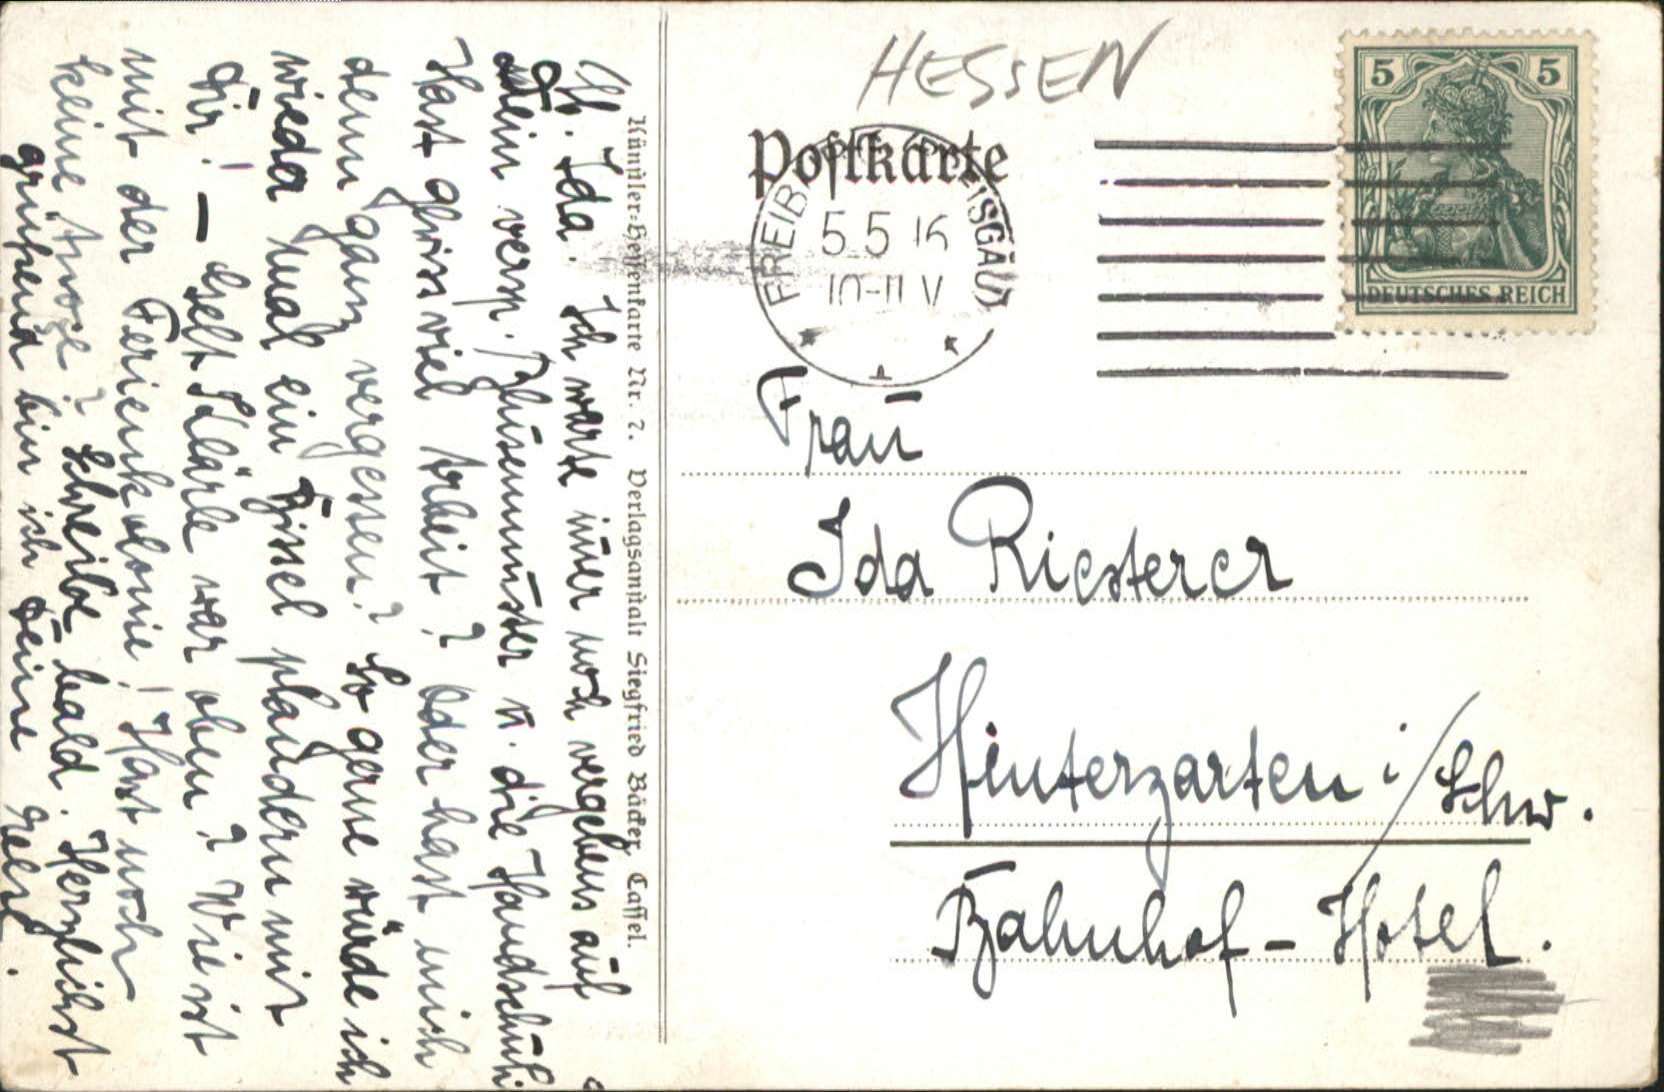 HESSEN
Postkarte
5 5
DEUTSCHES REICH
FREIB BREISGAU
5 5 16
10-11 V
Frau
Ida Riesterer
Hinterzarten i/Schw.
Bahnhof-Hotel.
Künstler-Hessenkarte Nr. 2. Verlagsanstalt Siegfried Bäcker, Cassel.
Ida. Ich warte im̅er noch vergebens auf
Dein versp. Blusenmuster u. die Handschuh
Hast so viel Arbeit? Oder hast mich
denn ganz vergessen? So gerne würde ich
wieder mal ein Bissel plaudern mit
Dir! – Gelt Klärle war oben? Wie ist
mit der Ferienkolonie! Hast noch
keine? Schreibe bald. Herzlichst
grüßend bin ich Deine